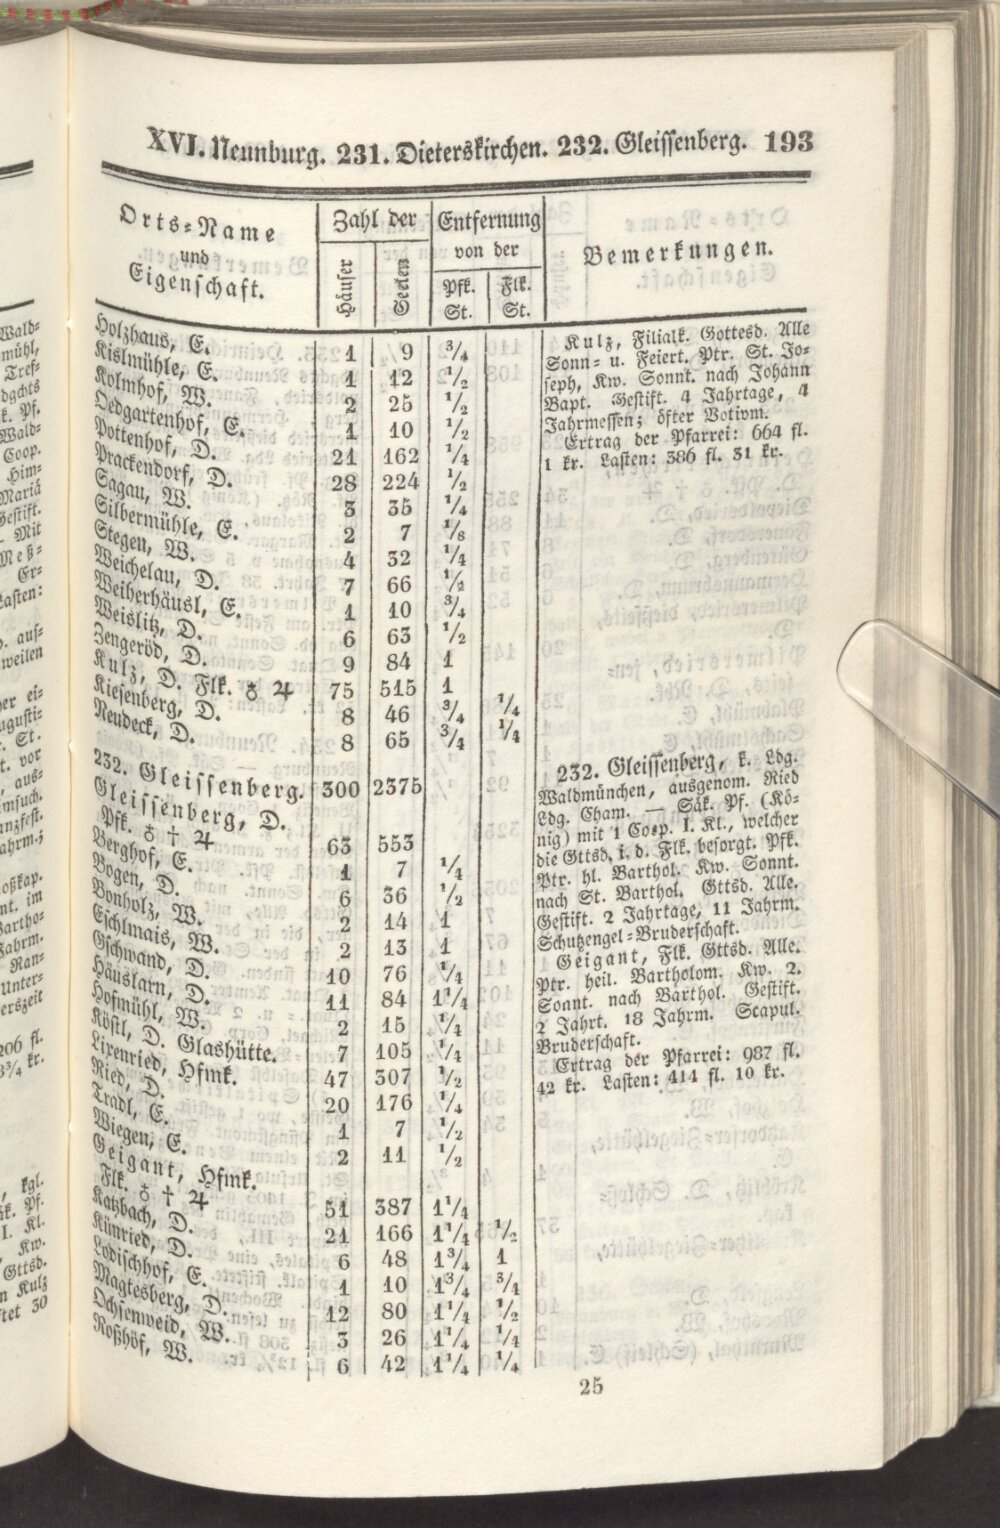 XVI. Neunburg. 231. Dieterskirchen. 232. Gleissenberg. 193
Orts=Name
und
Eigenschaft.
Zahl der
Häuser
Seelen
Entfernung
von der
Pfk. St.
Flk. St.
Bemerkungen.
Holzhaus, E. 1 9 3/4
Kislmühle, E. 1 12 1/2
Kolmhof, W. 2 25 1/2
Oedgartenhof, E. 1 10 1/2
Pottenhof, D. 21 162 1/4
Prackendorf, D. 28 224 1/2
Sagau, W. 3 35 1/4
Silbermühle, E. 2 7 1/8
Stegen, W. 4 32 1/4
Weichelau, D. 7 66 1/2
Weiherhäusl, E. 1 10 3/4
Weislitz, D. 6 63 1/2
Zengeröd, D. 9 84 1
Kulz, D. Flk. ♁ ♃ 75 515 1
Kiesenberg, D. 8 46 3/4 1/4
Neudeck, D. 8 65 3/4 1/4
232. Gleissenberg. 300 2375
Gleissenberg, D.
Pfk. ♁ † ♃ 63 553
Berghof, E. 1 7 1/4
Bogen, D. 6 36 1/2
Bonholz, W. 2 14 1
Eschlmais, W. 2 13 1
Gschwand, D. 10 76 1/4
Häuslarn, D. 11 84 1 1/4
Hofmühl, W. 2 15 1/4
Köstl, D. Glashütte. 7 105 1/4
Lixenried, Hfmk. 47 307 1/2
Ried, D. 20 176 1/4
Tradl, E. 1 7 1/2
Wiegen, E. 2 11 1/2
Geigant, Hfmk.
Flk. ♁ † ♃ 51 387 1 1/4
Katzbach, D. 21 166 1 1/4 1/2
Künried, D. 6 48 1 3/4 1
Lodischhof, E. 1 10 1 3/4 3/4
Magtesberg, D. 12 80 1 1/4 1/2
Ochsenweid, W. 3 26 1 1/4 1/4
Roßhöf, W. 6 42 1 1/4 1/4
Kulz, Filialk. Gottesd. Alle
Sonn= u. Feiert. Ptr. St. Jo=
seph, Kw. Sonnt. nach Johann
Bapt. Gestift. 4 Jahrtage, 4
Jahrmessen; öfter Votivm.
Ertrag der Pfarrei: 664 fl.
1 kr. Lasten: 386 fl. 31 kr.
232. Gleissenberg, k. Ldg.
Waldmünchen, ausgenom. Ried
Ldg. Cham. — Säk. Pf. (Kö=
nig) mit 1 Coop. I. Kl., welcher
die Gttsd. i. d. Flk. besorgt. Pfk.
Ptr. hl. Barthol. Kw. Sonnt.
nach St. Barthol. Gttsd. Alle.
Gestift. 2 Jahrtage, 11 Jahrm.
Schutzengel=Bruderschaft.
Geigant, Flk. Gttsd. Alle.
Ptr. heil. Bartholom. Kw. 2.
Sonnt. nach Barthol. Gestift.
2 Jahrt. 18 Jahrm. Scapul.
Bruderschaft.
Ertrag der Pfarrei: 987 fl.
42 kr. Lasten: 414 fl. 10 kr.
25